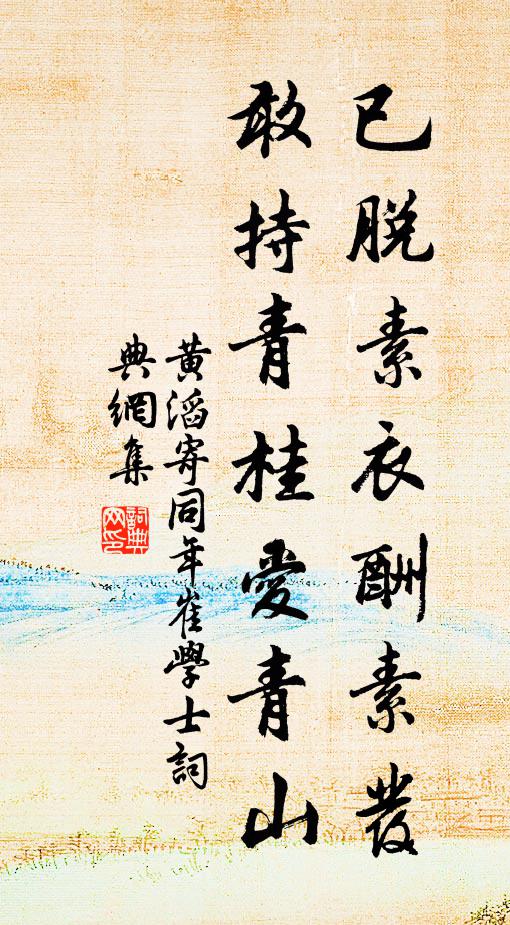 已脫素衣酬素發
敢持青桂愛青山
黃滔寄同年崔學士詞
典網集
詞典
网印